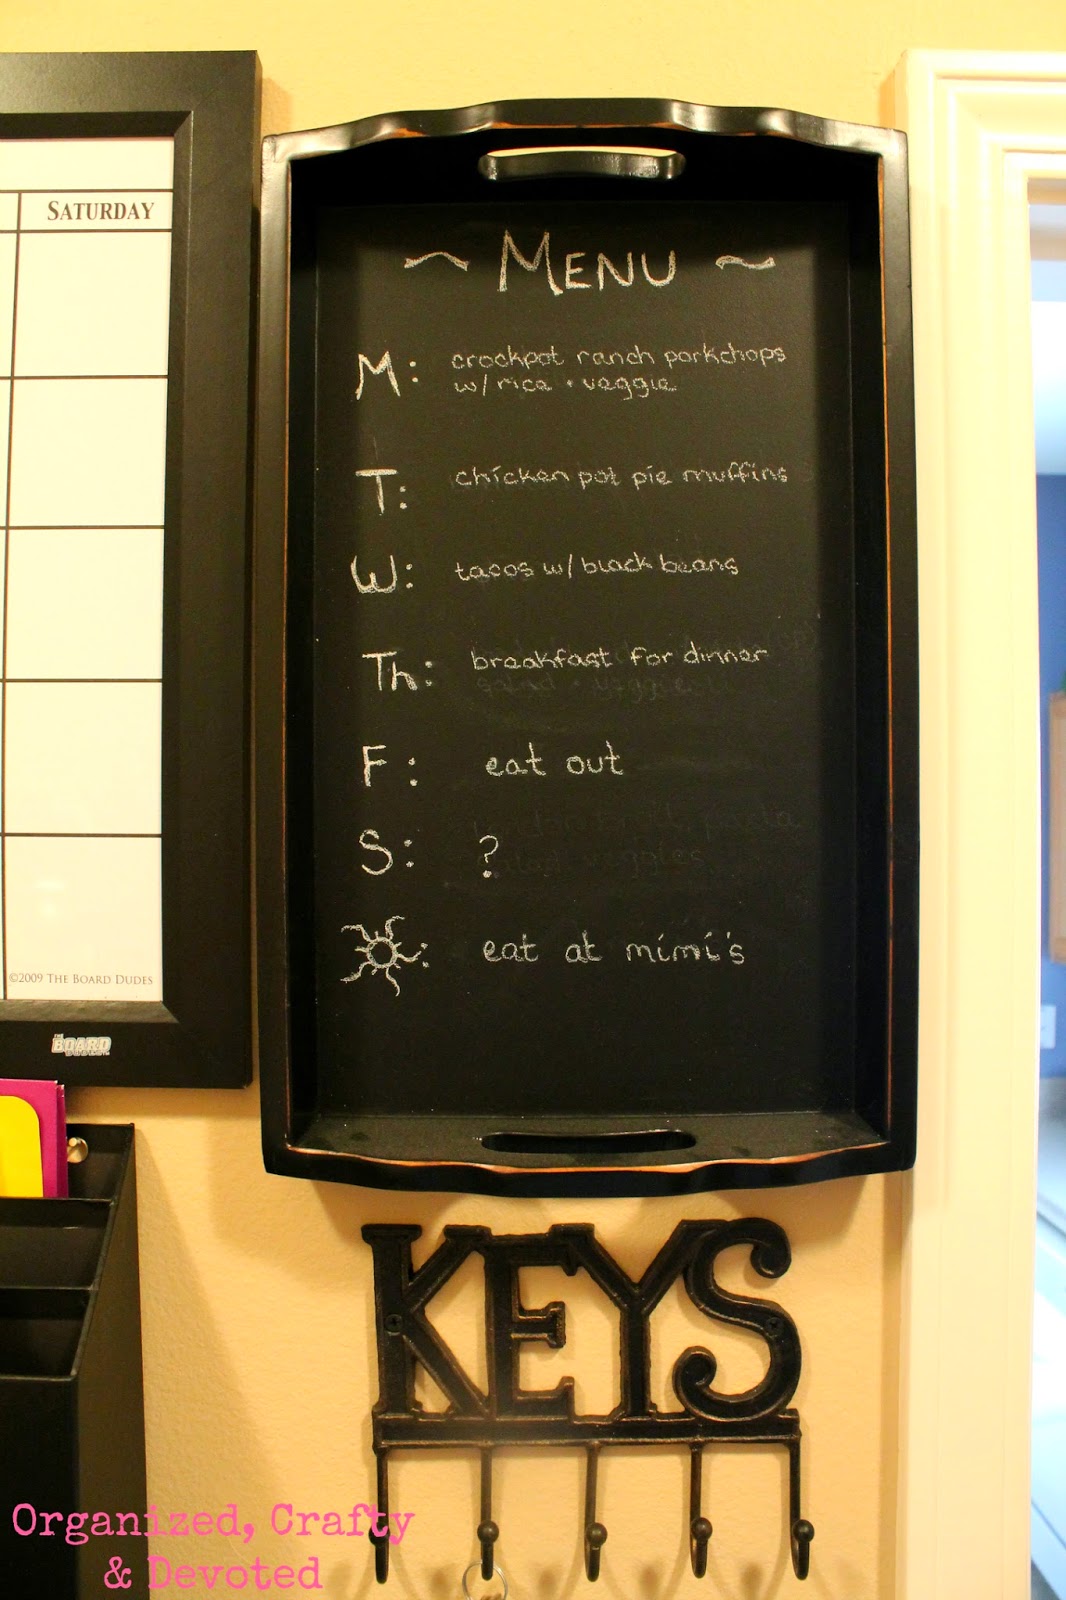 SATURDAY
©2009 THE BOARD DUDES
THE BOARD
~ MENU ~
M: crockpot ranch porkchops
w/ rice + veggie
T: chicken pot pie muffins
W: tacos w/ black beans
Th: breakfast for dinner
F: eat out
S: ?
: eat at mimi's
KEYS
Organized, Crafty
& Devoted